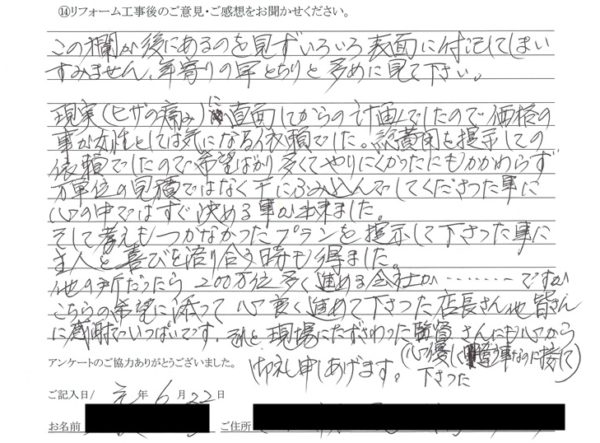 ⑭リフォーム工事後のご意見・ご感想をお聞かせください。
この欄が後にあるのを見ずいろいろ表面に付記してしまい
すみません。年寄りの早とちりと多めに見て下さい。
現実(ヒザの痛み)に直面してからの計画でしたので価格の
事が女性としては気になる依頼でした。認費用を提示しての
依頼でしたので希望ばかり多くてやりにくかったにもかかわらず
万単位の見積ではなく千にふみ込んでしてくださった事に
心の中ではすぐ決める事が出来ました。
そして考えもつかなかったプランを提示して下さった事に
主人と喜びを語り合う時も得ました。
他の所だったら200万位多く進める会社が………ですが
こちらの希望に添って心良く進めて下さった店長さん他皆さん
に感謝でいっぱいです。それと現場にたずさわった監督さんにも心から
御礼申しあげます。(心優しく 事なのに接して
下さった)
アンケートのご協力ありがとうございました。
ご記入日/ 元年6月22日
お名前 ご住所